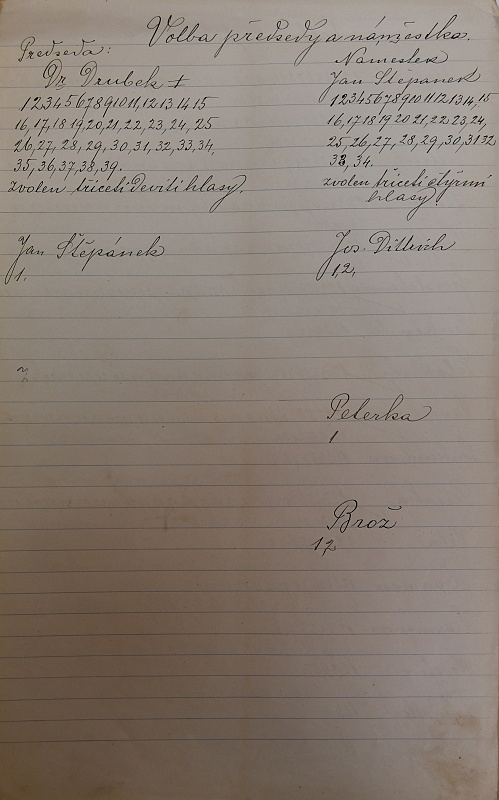 Volba předsedy a náměstka.
Předseda:
Dr. Drubek +
1 2 3 4 5 6 7 8 9 10 11, 12 13 14 15
16, 17, 18 19, 20, 21, 22, 23, 24, 25
26, 27, 28, 29, 30, 31, 32, 33, 34,
35, 36, 37, 38, 39.
zvolen třiceti devíti hlasy.
Jan Štěpánek
1.
Namestek
Jan Štepanek
1 2 3 4 5 6 7 8 9 10 11 12 13 14, 15
16, 17 18 19 20 21, 22 23, 24,
25, 26, 27, 28, 29, 30, 31 32
33, 34.
zvolen třiceti čtyřmi
hlasy.
Jos. Dittrich
1, 2,
Peterka
1
Brož
1 2